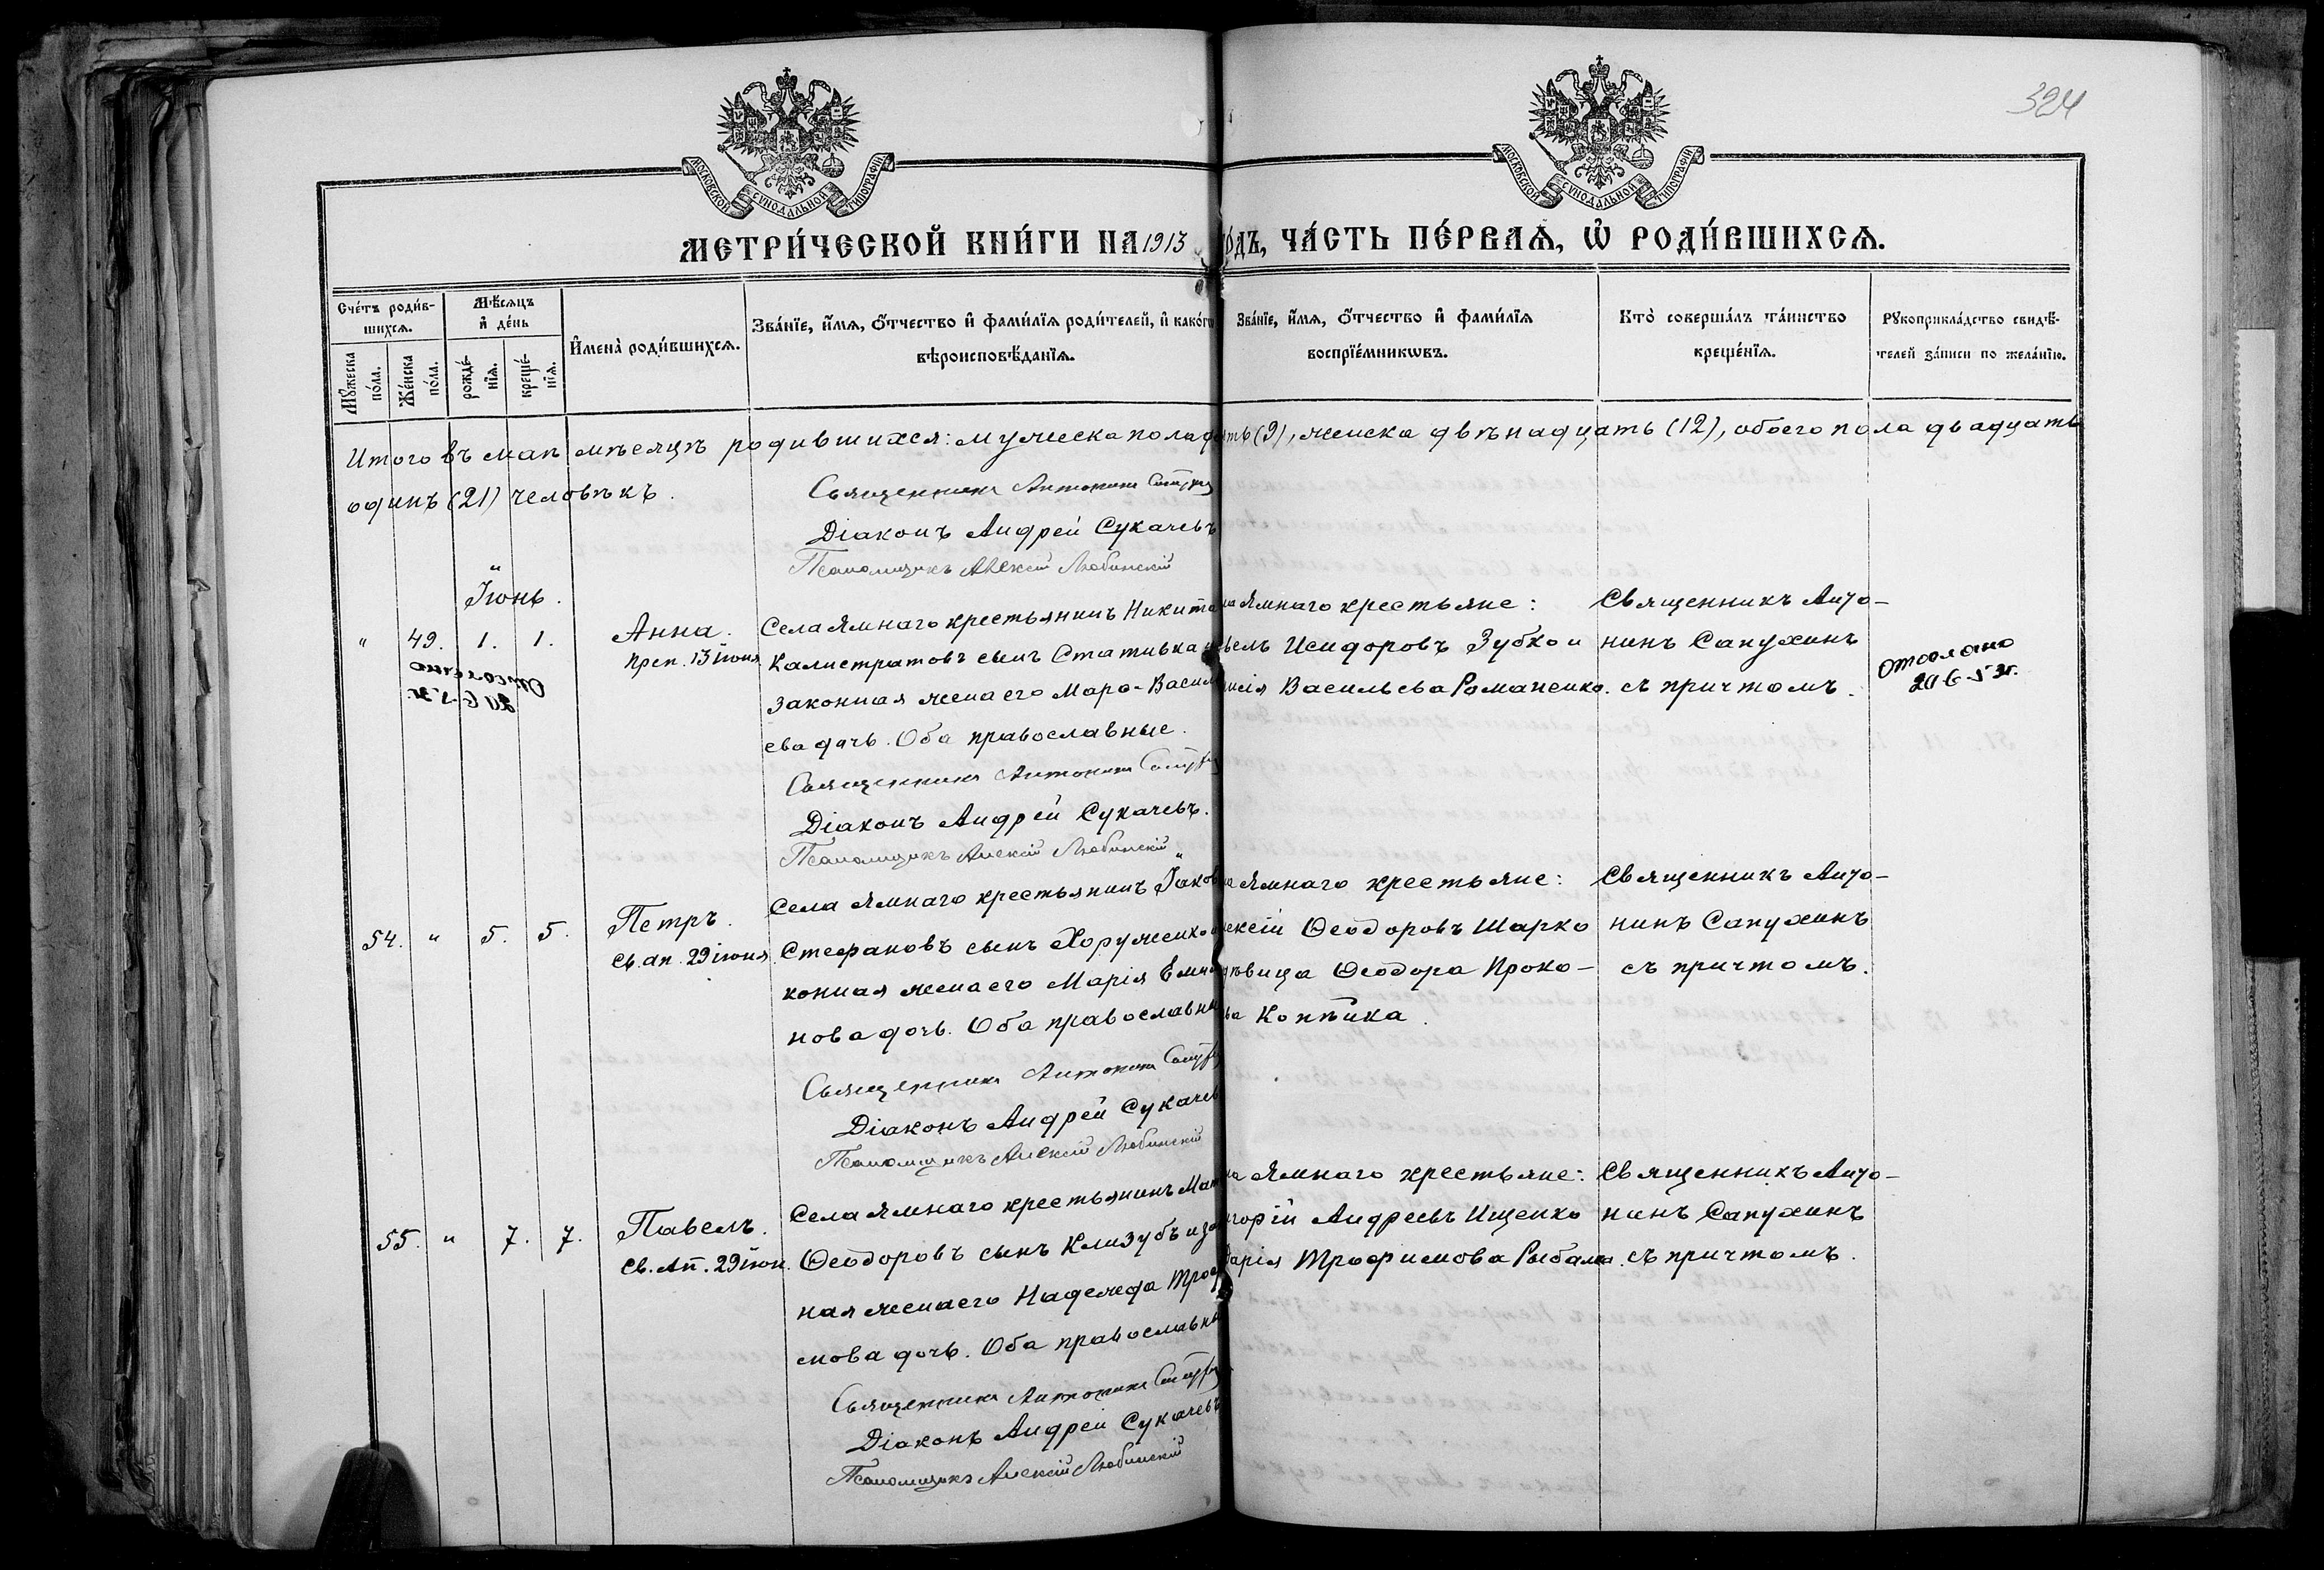 324
МОСКОВСКОЙ СУНОДАЛЬНОЙ ТИПОГРАФІИ
МОСКОВСКОЙ СУНОДАЛЬНОЙ ТИПОГРАФІИ
МЕТРИ́ЧЕСКОЙ КНИ́ГИ НА 1913 ГО́ДЪ, ЧА́СТЬ ПЕ́РВАѦ, Ѡ҆ РОДИ́ВШИХСѦ.
Сче́тъ роди́в-
шихсѧ.
Мꙋ́жеска по́ла.
Же́нска по́ла.
Мѣ́сѧцъ
и҆ де́нь
рожде́-
нїѧ.
креще́-
нїѧ.
И҆мена̀ роди́вшихсѧ.
Зва́нїе, и҆́мѧ, ѻ҆́тчество и҆ фами́лїѧ роди́телей, и҆ како́гѡ
вѣроисповѣ́данїѧ.
Зва́нїе, и҆́мѧ, ѻ҆́тчество и҆ фами́лїѧ
воспрїе́мникѡвъ.
Кто̀ соверша́лъ та́инство
креще́нїѧ.
Рꙋкоприкла́дство свидѣ́-
телей за́писи по жела́нїю.
Итого въ маѣ мѣсяцѣ родившихся: мужеска пола (9), женска двѣнадцать (12), обоего пола двадцать
одинъ (21) человѣкъ.
Священникъ Антонинъ
Діаконъ Андрей Сукачевъ
Псаломщикъ Алексій Любинскій
Іюнь.
" 49. 1. 1.
Анна.
преп. 13 іюня
Села Ямнаго крестьянинъ Никита
Калистратовъ сынъ Стативка
законная жена его Марѳа Василь
ева дочь. Оба православные.
Священникъ Антонинъ
Діаконъ Андрей Сукачевъ.
Псаломщикъ Алексій Любинскій
Ямнаго крестьяне:
Исидоровъ Зубко и
Васильева Романенко.
Священникъ Анто-
нинъ Сапухинъ
съ причтомъ.
Отослано
Отослано
54. " 5. 5.
Петръ.
Св. ап. 29 іюня
Села Ямнаго крестьянинъ Іаков
Стефановъ сынъ Хоруженко
конная жена его Марія
нова дочь. Оба православны
Священникъ Антонинъ
Діаконъ Андрей Сукачев
Псаломщикъ Алексій Любинскій
Ямнаго крестьяне:
Ѳеодоровъ Шарко
дѣвица Ѳеодора Проко-
Копѣйка.
Священникъ Анто-
нинъ Сапухинъ
съ причтомъ.
55. " 7. 7.
Павелъ.
Св. Ап. 29 іюн.
Села Ямнаго крестьянинъ
Ѳеодоровъ сынъ Клизубъ
ная жена его Надежда Троф
мова дочь. Оба православны
Священникъ Антонинъ
Діаконъ Андрей Сукачевъ
Псаломщикъ Алексій Любинскій
Ямнаго крестьяне:
Андреевъ Ищенко
Трофимова
Священникъ Анто-
нинъ Сапухинъ
съ причтомъ.